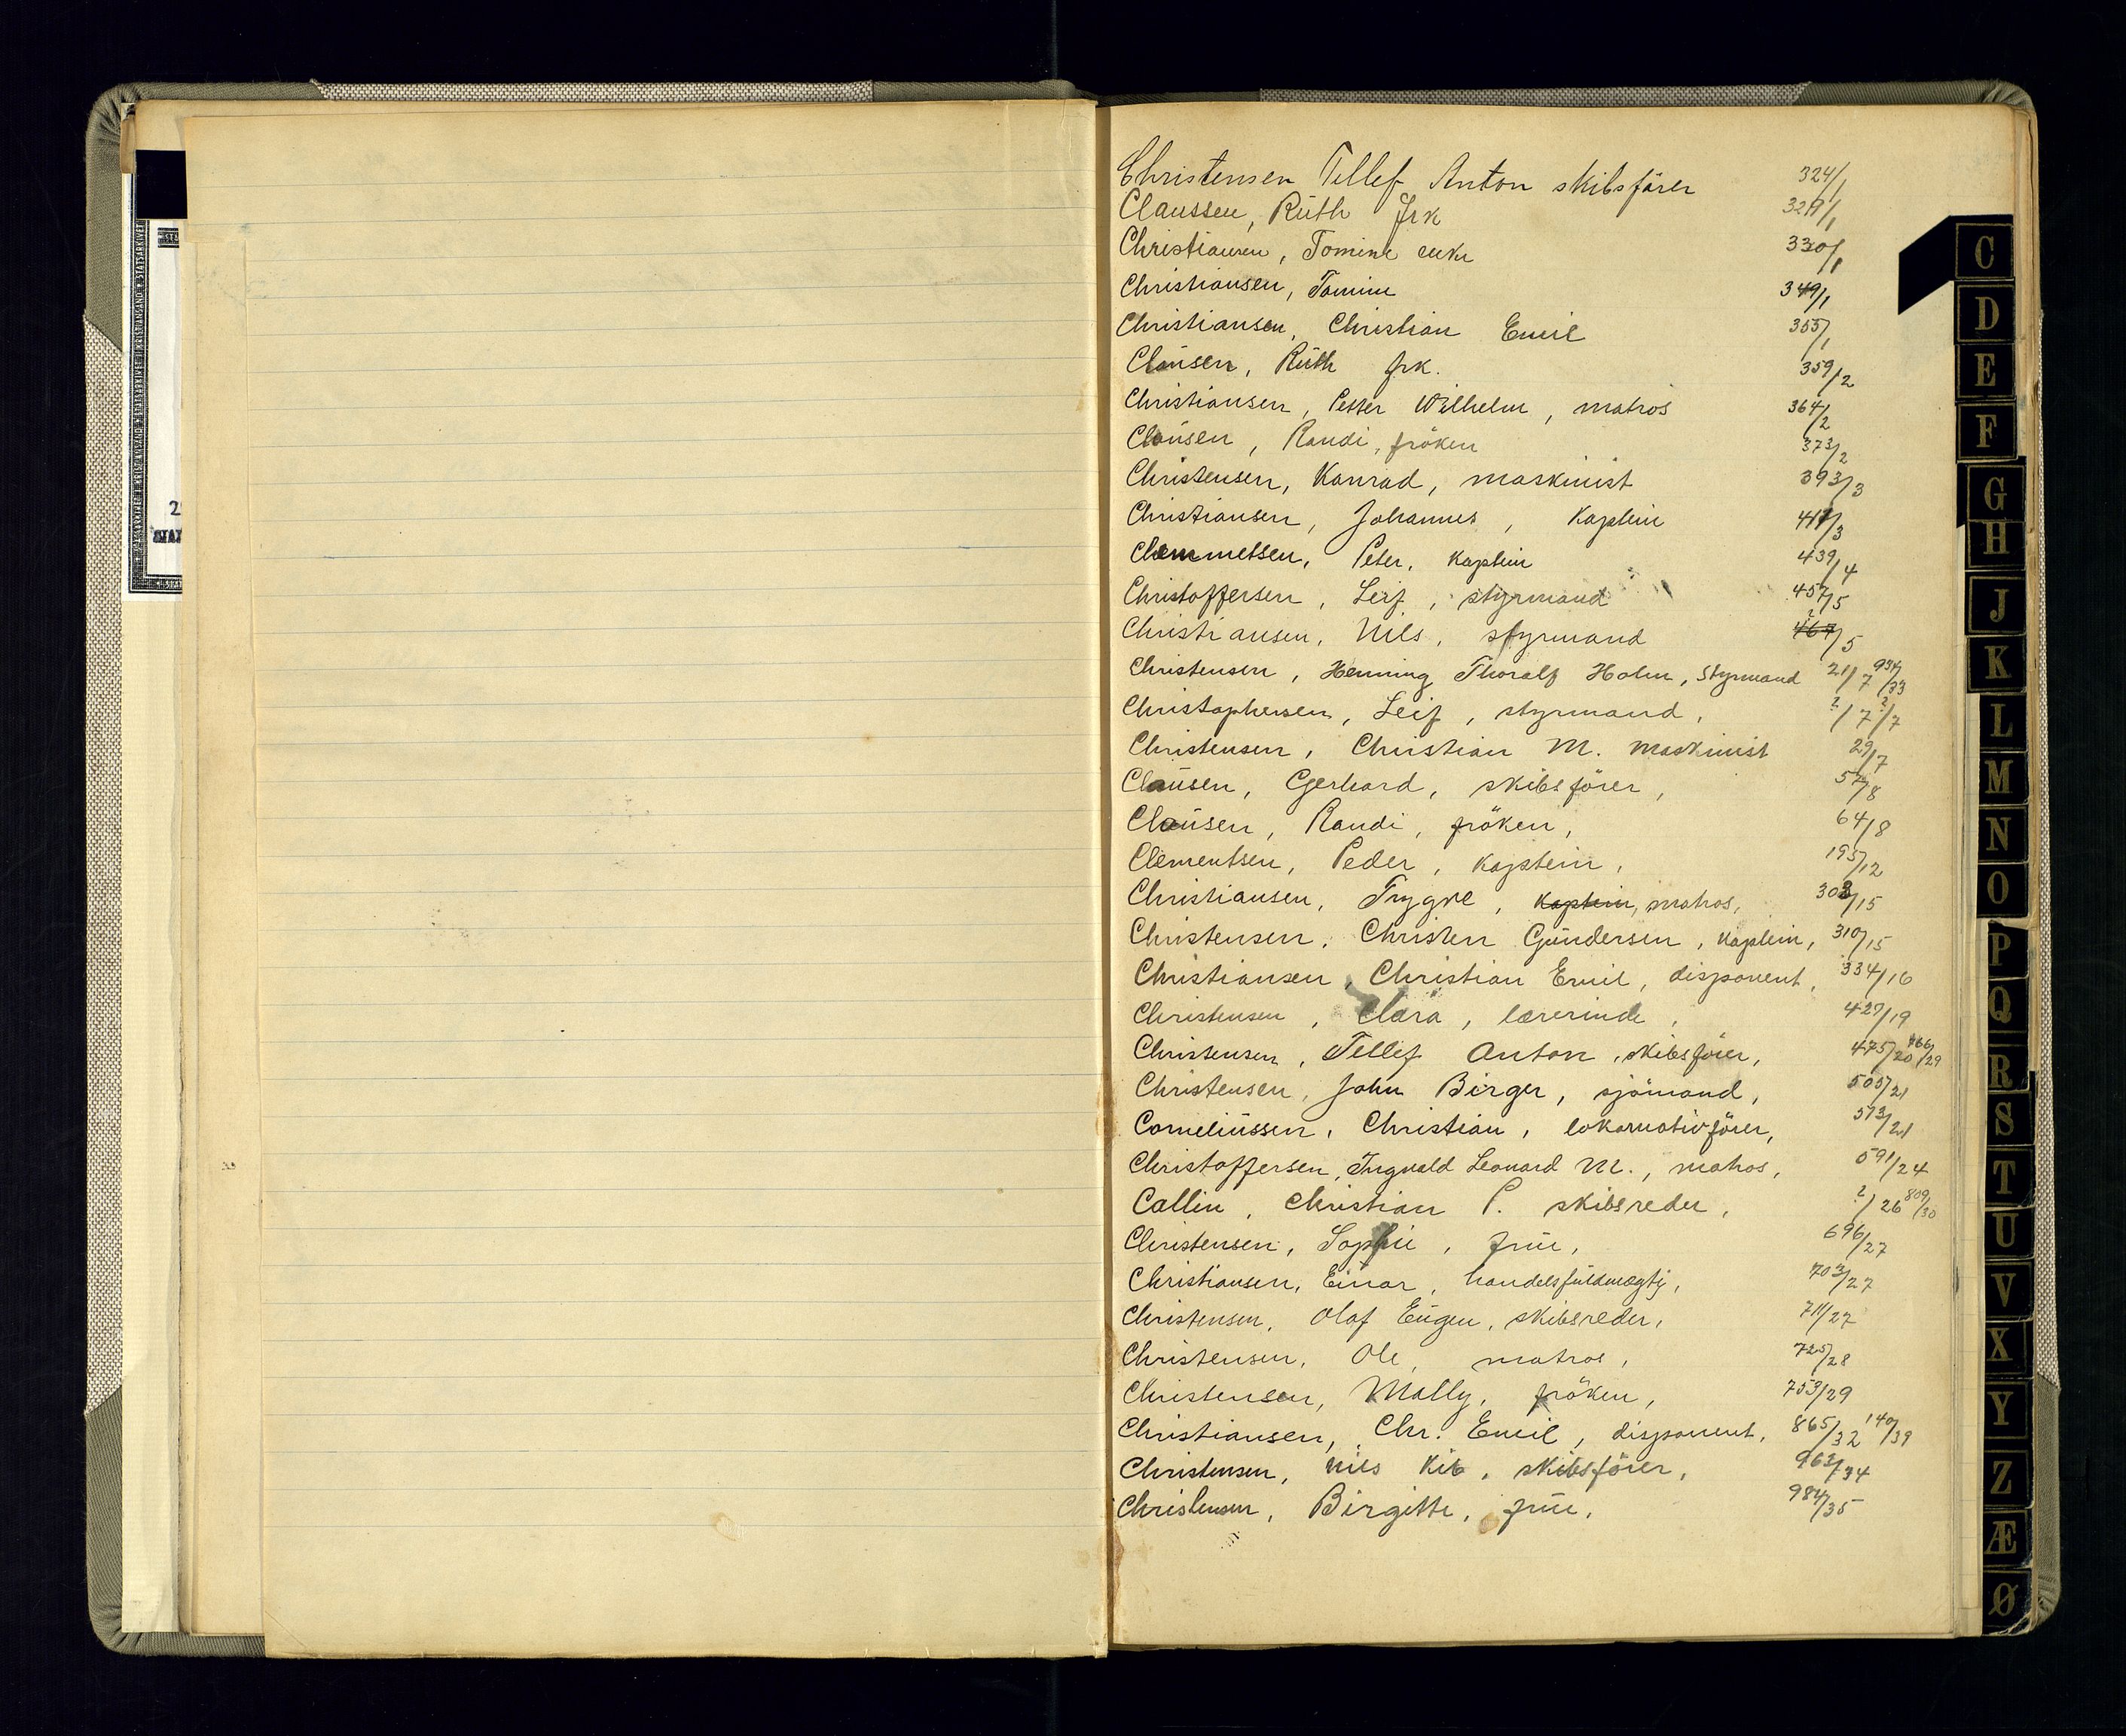 Christensen Tellef Anton skibsförer 324/1
Claussen, Ruth Frk 329/1
Christiansen, Tomine enke 330/1
Christiansen, Tomine 349/1
Christiansen, Christian Emil 355/1
Clausen, Ruth frk. 359/2
Christiansen, Petter Wilhelm, matros 364/2
Clausen, Randi, fröken 373/2
Christensen, Konrad, maskinist 393/3
Christiansen, Johannes, Kaptein 417/3
Clemmetsen, Peter, kaptein 439/4
Christoffersen, Leif, styrmand 457/5
Christiansen, Nils, styrmand 467/5
Christensen, Henning Thoralf Holm, Styrmand 21/7 934/33
Christophersen, Leif, styrmand, ?/7 ?/7
Christensen, Christian M. maskinist 29/7
Clausen, Gerhard, skibsförer, 57/8
Clausen, Randi, fröken, 64/8
Clementsen, Peder, kaptein, 195/12
Christiansen, Trygve, kaptein, matros, 303/15
Christensen, Christen Gundersen, kaptein, 310/15
Christiansen, Christian Emil, disponent, 334/16
Christensen, Clara, lærerinde, 427/19
Christensen, Tellef Anton, skibsförer, 475/20 766/29
Christensen, John Birger, sjömand, 505/21
Corneliussen, Christian, lokomotivförer, 513/21
Christoffersen, Ingvald Leonard M., matros, 591/24
Callin, Christian P. skibsreder, ?/26 809/30
Christensen, Sophie, frue, 696/27
Christiansen, Einar, handelsfuldmægtj, 703/27
Christensen, Olaf Eugen, skibsreder, 711/27
Christensen, Ole, matros, 725/28
Christensen, Mally, fröken, 753/29
Christiansen, Chr. Emil, disponent, 865/32 140/39
Christensen, Nils Kib, skibsförer, 963/34
Christensen, Birgitte, frue, 984/35
C
D
E
F
G
H
J
K
L
M
N
O
P
Q
R
S
T
U
V
X
Y
Z
Æ
Ø